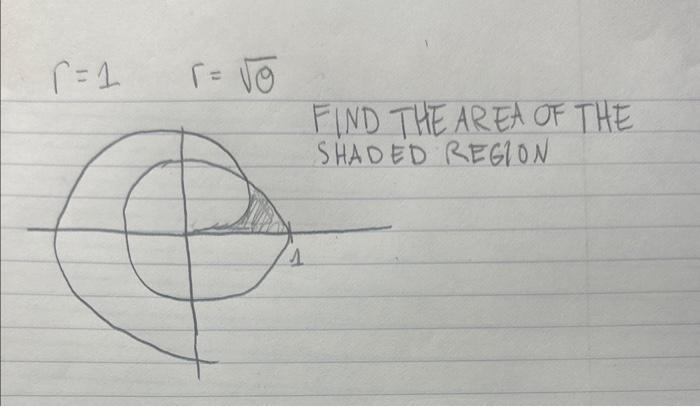 r = 1 r = √θ
FIND THE AREA OF THE
SHADED REGION
1